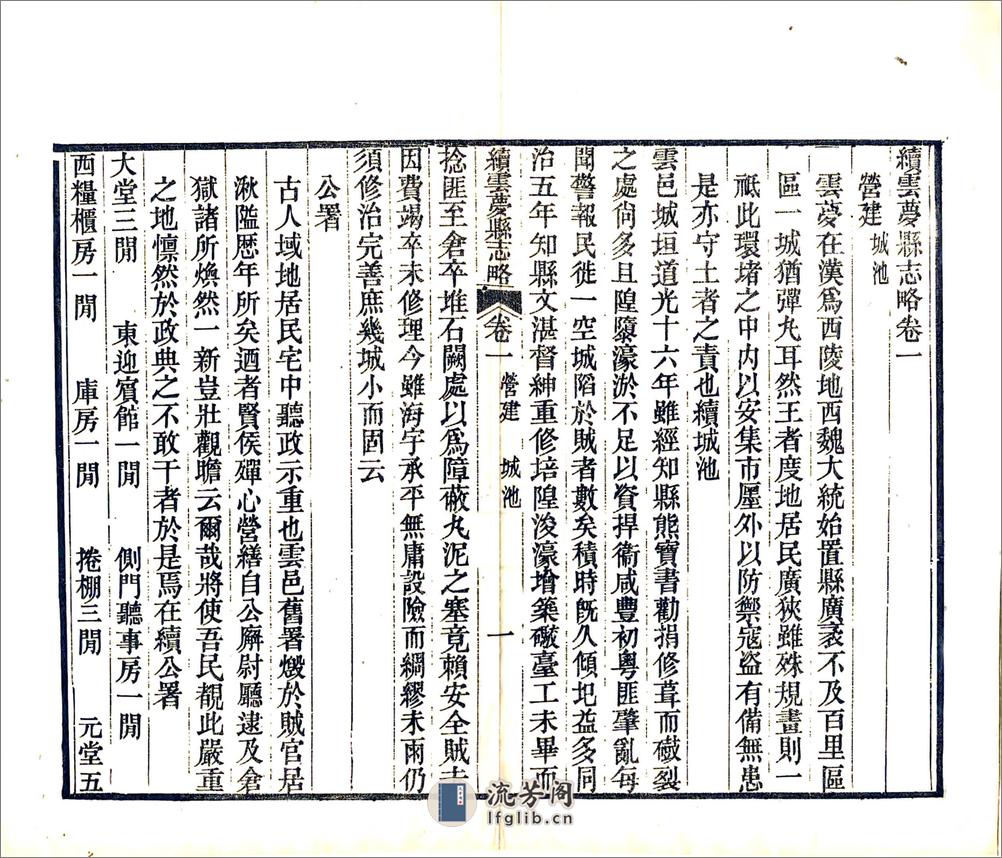 續雲夢縣志略卷一
營建 城池
雲夢在漢爲西陵地西魏大統始置縣廣袤不及百里區
區一城猶彈丸耳然王者度地居民廣狹雖殊規畫則一
祇此環堵之中內以安集市廛外以防禦寇盜有備無患
是亦守土者之責也續城池
雲邑城垣道光十六年雖經知縣熊寶書勸捐修葺而礆裂
之處尚多且隍隳濠淤不足以資捍衞咸豐初粵匪肇亂每
聞警報民徙一空城陷於賊者數矣積時旣久傾圯益多同
治五年知縣文湛督紳重修培隍浚濠增築礮臺工未畢而
續雲夢縣志略 卷一 營建 城池 一
捻匪至倉卒堆石闕處以爲障蔽丸泥之塞竟賴安全賊去
因費竭卒未修理今雖海宇承平無庸設險而綢繆未雨仍
須修治完善庶幾城小而固云
公署
古人域地居民宅中聽政示重也雲邑舊署燬於賊官居
湫隘歷年所矣迺者賢侯殫心營繕自公廨尉廳逮及倉
獄諸所煥然一新豈壯觀瞻云爾哉將使吾民覩此嚴重
之地懍然於政典之不敢干者於是焉在續公署
大堂三閒 東迎賓館一閒 側門聽事房一閒
西糧櫃房一閒 庫房一閒 捲棚三閒 元堂五
流芳阁
lfglib.cn